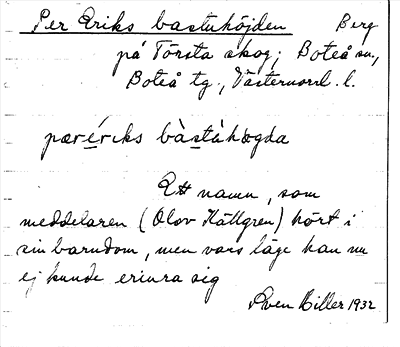 Per Eriks bastuhöjden Berg
på Torsta skog; Boteå sn.,
Boteå tg., Västernorrl. l.
pærériks bàstàhøgda
Ett namn, som
meddelaren (Olov Hällgren) hört i
sin barndom, men vars läge han nu
ej kunde erinra sig
Sven Hiller 1932